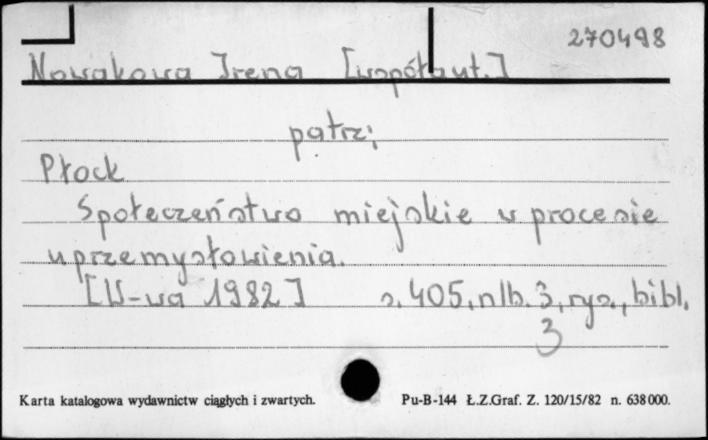 270498
Nowakowa Irena [współaut.]
patrz:
Płock
Społeczeństwo miejskie w procesie
uprzemysłowienia.
[W-wa 1982] s. 405, nlb. 3, rys., bibl.
3
Karta katalogowa wydawnictw ciągłych i zwartych. Pu-B-144 Ł.Z.Graf. Z. 120/15/82 n. 638000.